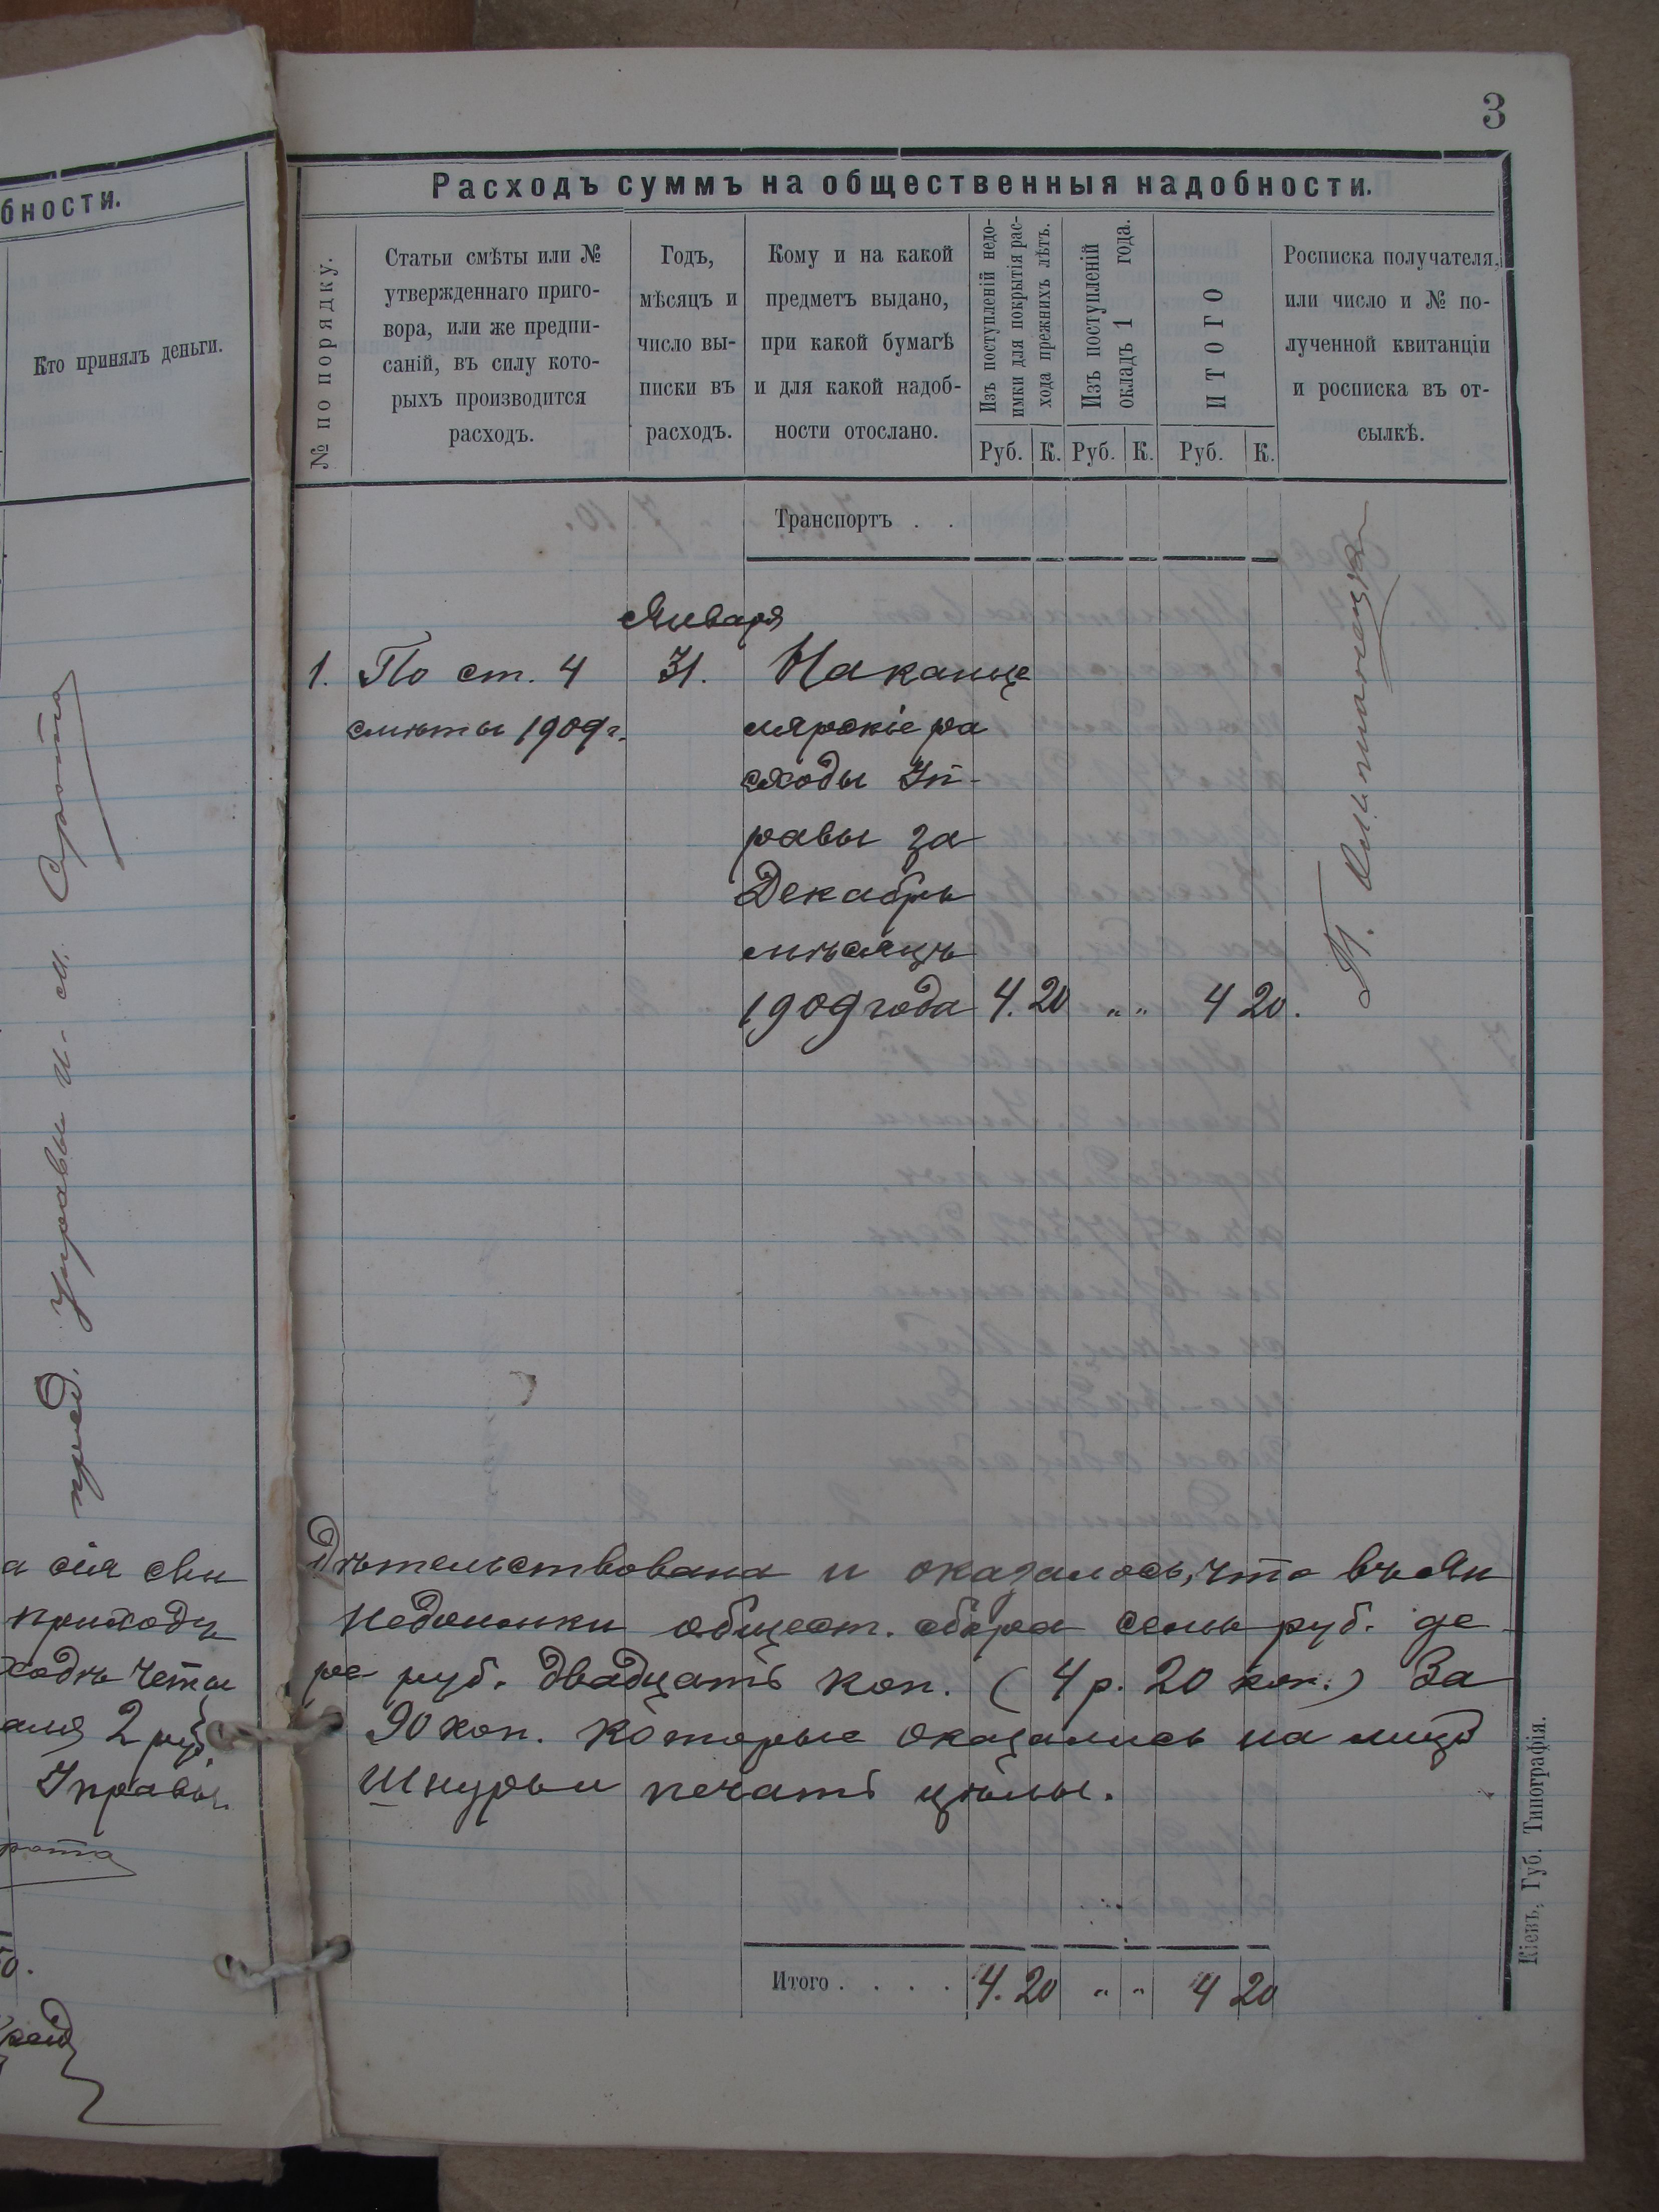 бности.
Кто принялъ деньги.
пред. Управы И. М. Сирота
а сія сви
приходѣ
ходѣ четы
2 руб.
Управы.
рота
3
Расходъ суммъ на общественныя надобности.
№ по порядку.
Статьи смѣты или №
утвержденнаго приго-
вора, или же предпи-
саній, въ силу кото-
рыхъ производится
расходъ.
Годъ,
мѣсяцъ и
число вы-
писки въ
расходъ.
Кому и на какой
предметъ выдано,
при какой бумагѣ
и для какой надоб-
ности отослано.
Изъ поступленій недо-
имки для покрытія рас-
хода прежнихъ лѣтъ.
Изъ поступленій
окладъ 1 года.
ИТОГО
Росписка получателя,
или число и № по-
лученной квитанціи
и росписка въ от-
сылкѣ.
Руб. К. Руб. К. Руб. К.
Транспортъ . .
Января
1. По ст. 4 31. На канце
смѣты 1909 г. лярскіе ра
сходы Уп-
равы за
Декабрь
мѣсяцъ
1909 года 4. 20 „ „ 4 20.
дѣтельствована и оказалось, что въ Ян
недоимки общест. сбора семь руб. де
ре руб. двадцать коп. (4 р. 20 коп.) За
90 коп. которые оказались на лицо
Шнуръ и печать цѣлы.
Итого . . . . 4. 20 „ „ 4 20
Кіевъ, Губ. Типографія.